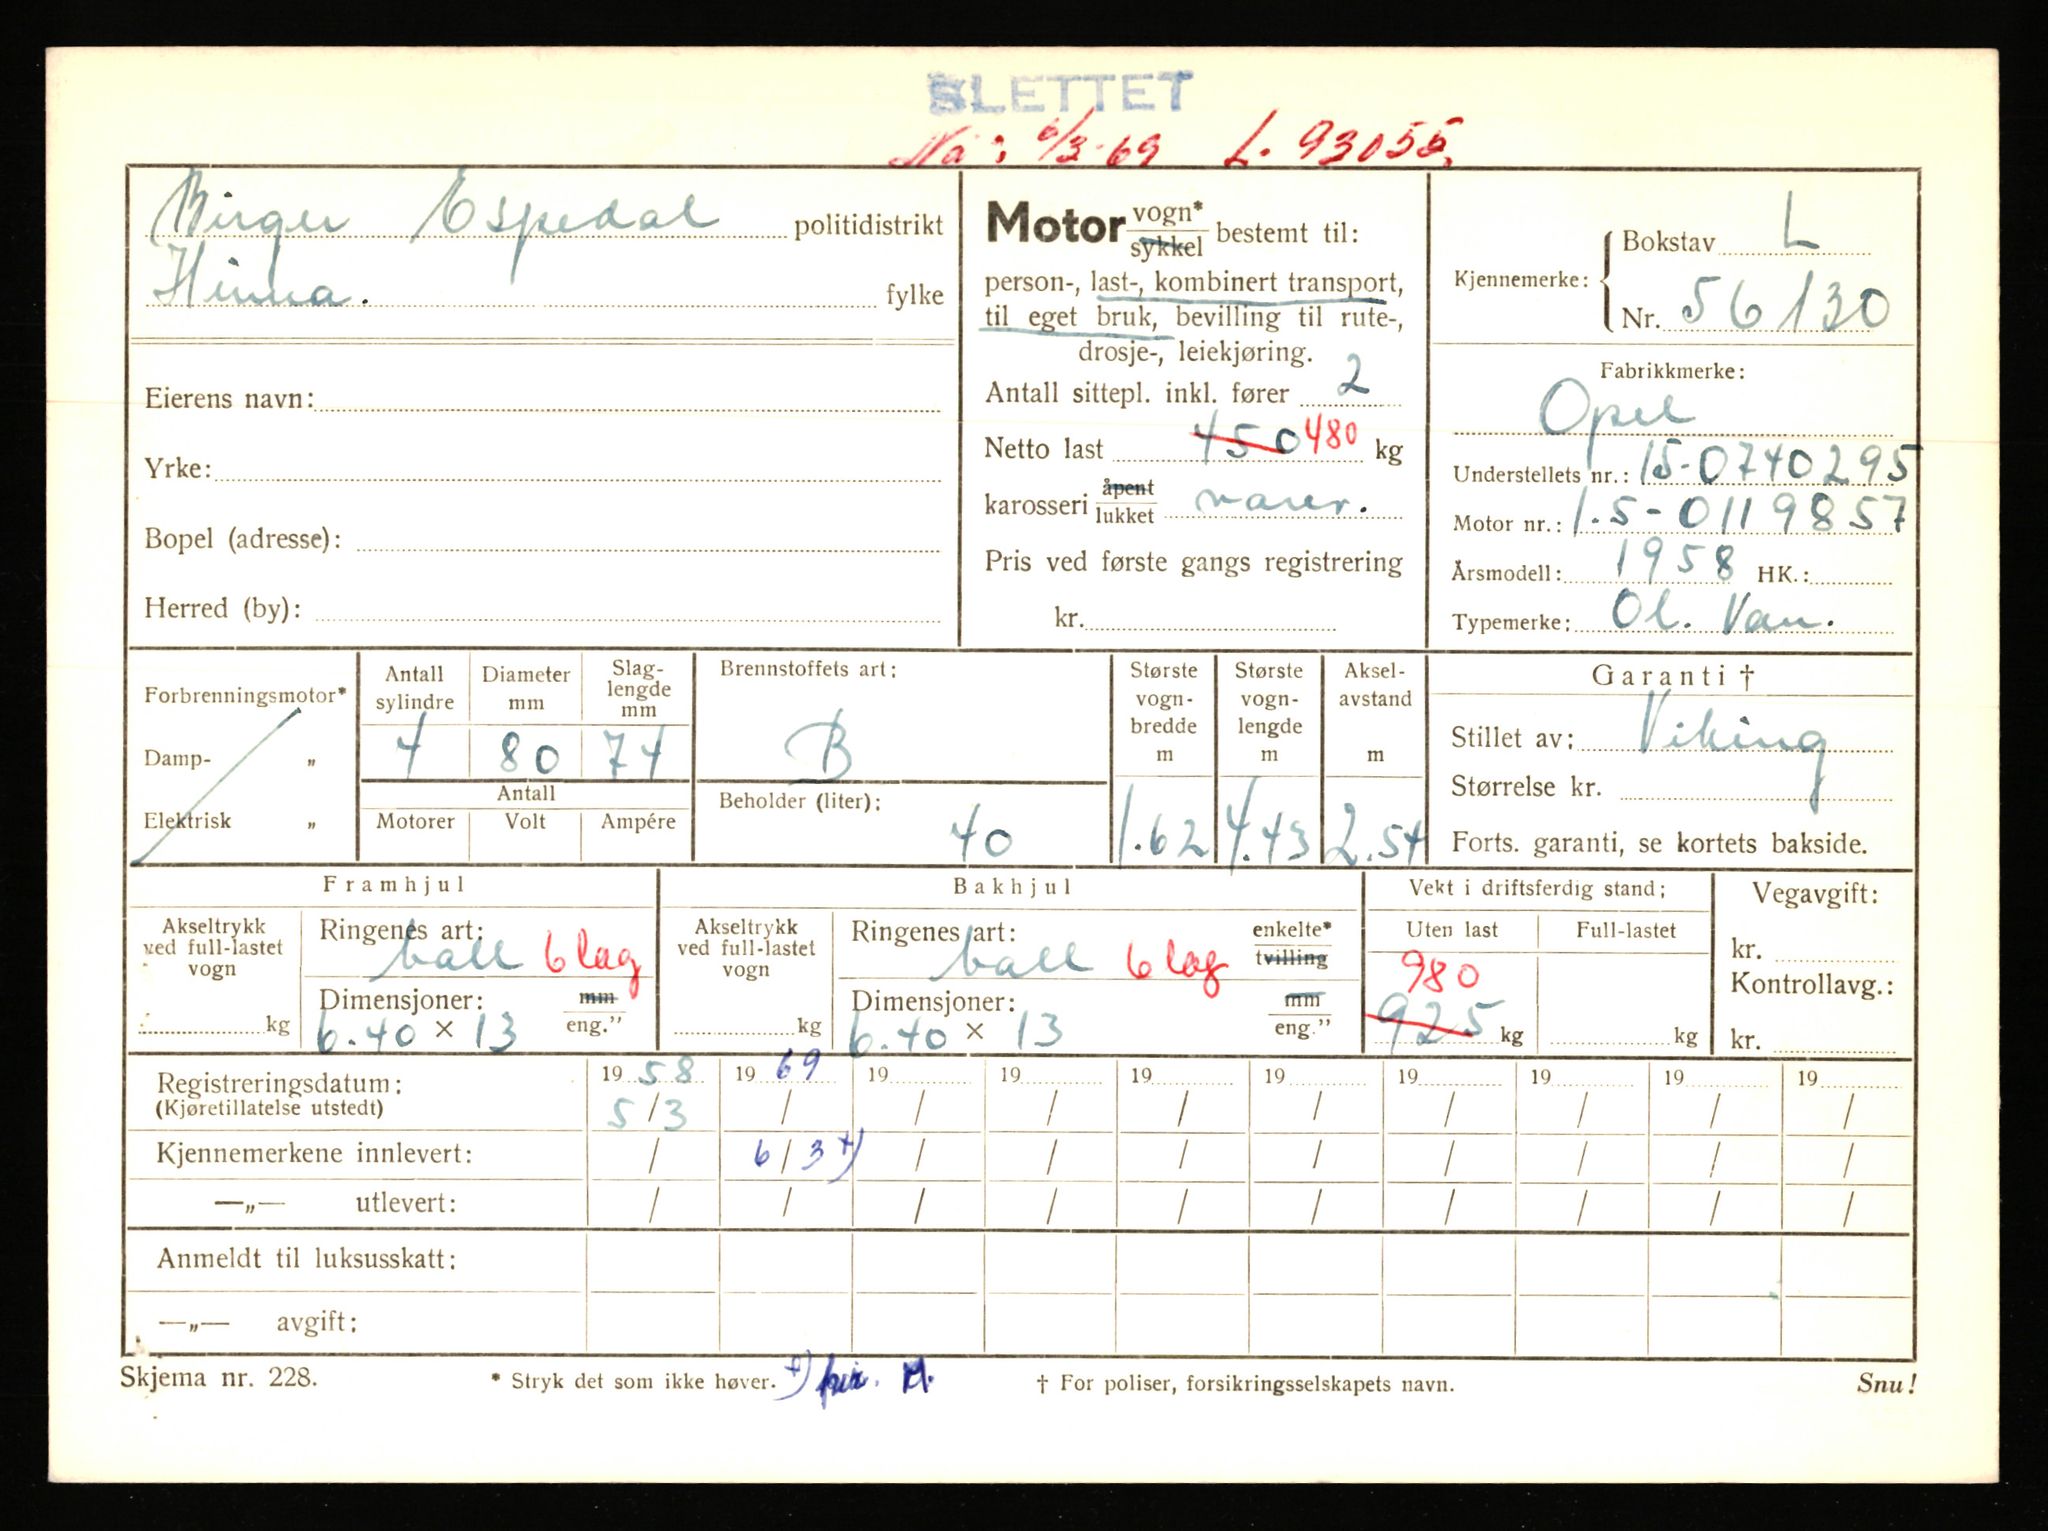 SLETTET
Nå: 6/3-69 L. 93055.
Birger Espedal politidistrikt
Hinna. fylke
Eierens navn:
Yrke:
Bopel (adresse):
Herred (by):
Motor vogn* sykkel bestemt til:
person-, last-, kombinert transport,
til eget bruk, bevilling til rute-,
drosje-, leiekjøring.
Antall sittepl. inkl. fører 2
Netto last 450 480 kg
karosseri åpent lukket varev.
Pris ved første gangs registrering
kr.
Kjennemerke: Bokstav L
Nr. 56130
Fabrikkmerke:
Opel
Understellets nr.: 15-0740295
Motor nr.: 1.5-0119857
Årsmodell: 1958 HK.:
Typemerke: Ol. Van.
Forbrenningsmotor*
Damp- „
Elektrisk „
Antall sylindre Diameter mm Slag-lengde mm
4 80 74
Antall
Motorer Volt Ampére
Brennstoffets art:
B
Beholder (liter):
40
Største vogn-bredde m Største vogn-lengde m Aksel-avstand m
1.62 4.43 2.54
Garanti †
Stillet av: Viking
Størrelse kr.
Forts. garanti, se kortets bakside.
Framhjul
Akseltrykk ved full-lastet vogn
kg
Ringenes art:
ball 6 lag
Dimensjoner: mm eng.”
6.40 × 13
Bakhjul
Akseltrykk ved full-lastet vogn
kg
Ringenes art: enkelte* tvilling
ball 6 lag
Dimensjoner: mm eng.”
6.40 × 13
Vekt i driftsferdig stand:
Uten last Full-lastet
980
925 kg kg
Vegavgift:
kr.
Kontrollavg.:
kr.
Registreringsdatum: 19 58 19 69 19 19 19 19 19 19 19 19
(Kjøretillatelse utstedt) 5/3 / / / / / / / / /
Kjennemerkene innlevert: / 6/3 +) / / / / / / / /
—„— utlevert: / / / / / / / / / /
Anmeldt til luksusskatt:
—„— avgift:
Skjema nr. 228. * Stryk det som ikke høver. +) † For poliser, forsikringsselskapets navn. Snu!